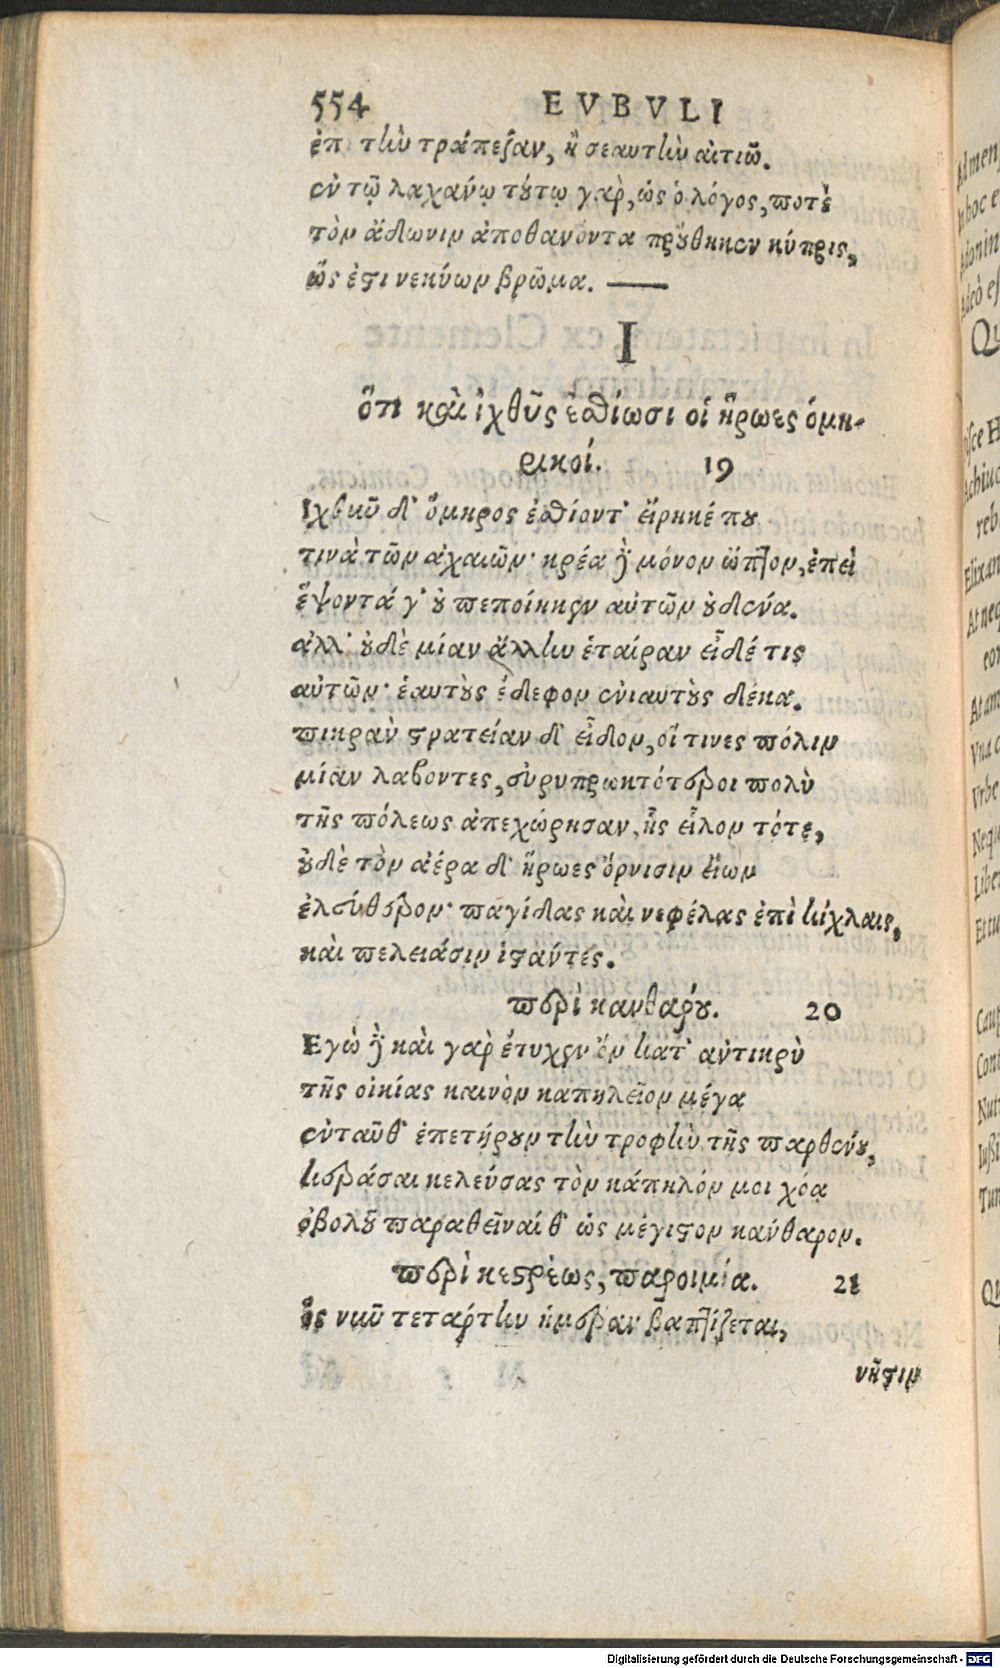 554 EVBVLI
ἐπ τὴν τράπεζαν, ἢ σεαυτὴν αἰτιῶ.
ἐν τῷ λαχάνῳ τούτῳ γὰρ, ὡς ὁ λόγος, ποτὲ
τὸν ἄδωνιν ἀποθανόντα προὔθηκεν κύπρις,
ὥς ἐστι νεκύων βρῶμα. —
I
ὅτι καὶ ἰχθῦς ἐσθίωσι οἱ ἥρωες ὁμη-
ρικοί. 19
Ἰχθὺν δ' ὅμηρος ἐσθίοντ' εἴρηκέ που
τινὰ τῶν ἀχαιῶν· κρέα δὲ μόνον ὤπτων, ἐπεὶ
ἕψοντά γ' οὐ πεποίηκεν αὐτῶν οὐδένα.
ἀλλ' οὐδὲ μίαν ἄλλην ἑταίραν εἶδέ τις
αὐτῶν· ἑαυτοὺς ἔδεφον ἐνιαυτοὺς δέκα.
πικρὰν στρατείαν δ' εἶδον, οἵ τινες πόλιν
μίαν λαβοντες, εὐρυπρωκτότεροι πολὺ
τῆς πόλεως ἀπεχώρησαν, ἧς εἷλον τότε,
οὐδὲ τὸν ἀέρα δ' ἥρωες ὄρνισιν εἴων
ἐλεύθερον· παγίδας καὶ νεφέλας ἐπὶ κίχλαις,
καὶ πελειάσιν ἱστάντες.
περὶ κανθαρου. 20
Ἐγὼ δὲ καὶ γὰρ ἔτυχεν ὂν κατ' αὐτικρὺ
τῆς οἰκίας καινὸν καπηλεῖον μέγα
ἐνταῦθ' ἐπετήρουν τὴν τροφὴν τῆς παρθένου,
κεράσαι κελεύσας τὸν κάπηλόν μοι χόα
ὀβολοῦ παραθεῖναί θ' ὡς μέγιστον κάνθαρον.
περὶ κεστρέως, παροιμία. 21
ὃς νῦν τετάρτην ἡμέραν βαπτίζεται,
νῆστιν